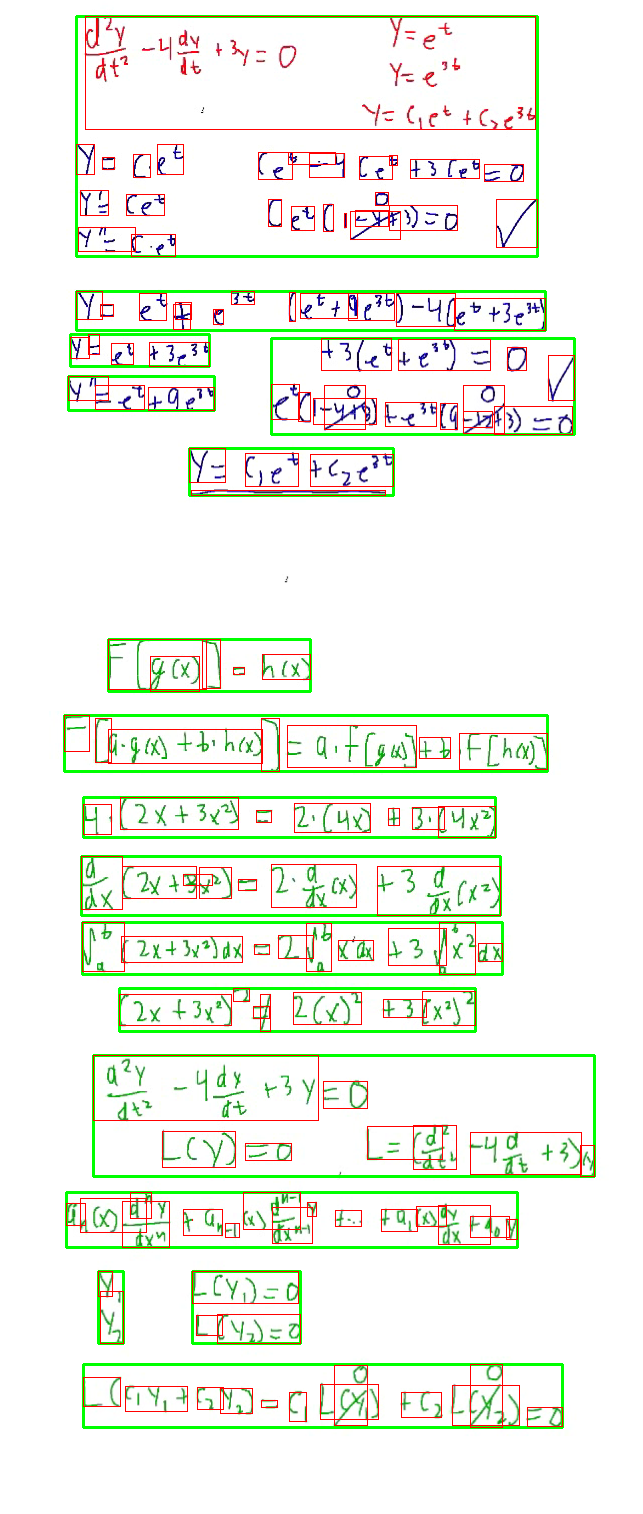 d²y/dt² - 4 dy/dt + 3y = 0
y = e^t
y = e^3t
y = c₁e^t + c₂e^3t
y = Ce^t
Ce^t - 4 Ce^t + 3Ce^t = 0
y' = Ce^t
Ce^t (1 - 4 + 3) = 0
0
✓
y'' = C·e^t
y = e^t + e^3t
(e^t + 9e^3t) - 4(e^t + 3e^3t)
y' = e^t + 3e^3t
+3(e^t + e^3t) = 0
y'' = e^t + 9e^3t
0 0
e^t(1 - 4 + 3) + e^3t(9 - 12 + 3) = 0
✓
y = c₁e^t + c₂e^3t
F[g(x)] = h(x)
F[a·g(x) + b·h(x)] = a·F[g(x)] + b·F[h(x)]
4·(2x + 3x²) = 2·(4x) + 3·(4x²)
d/dx (2x + 3x²) = 2· d/dx (x) + 3 d/dx (x²)
∫_a^b (2x + 3x²)dx = 2∫_a^b x dx + 3∫_a^b x² dx
(2x + 3x²)² ≠ 2(x)² + 3(x²)²
d²y/dt² - 4 dx/dt + 3y = 0
L(y) = 0
L = (d²/dt² - 4 d/dt + 3)y
aₙ(x) dⁿy/dxⁿ + aₙ₋₁(x) dⁿ⁻¹y/dxⁿ⁻¹ + ... + a₁(x) dy/dx + a₀y
y₁ L(y₁) = 0
y₂ L(y₂) = 0
0 0
L(c₁y₁ + c₂y₂) = c₁ L(y₁) + c₂ L(y₂) = 0